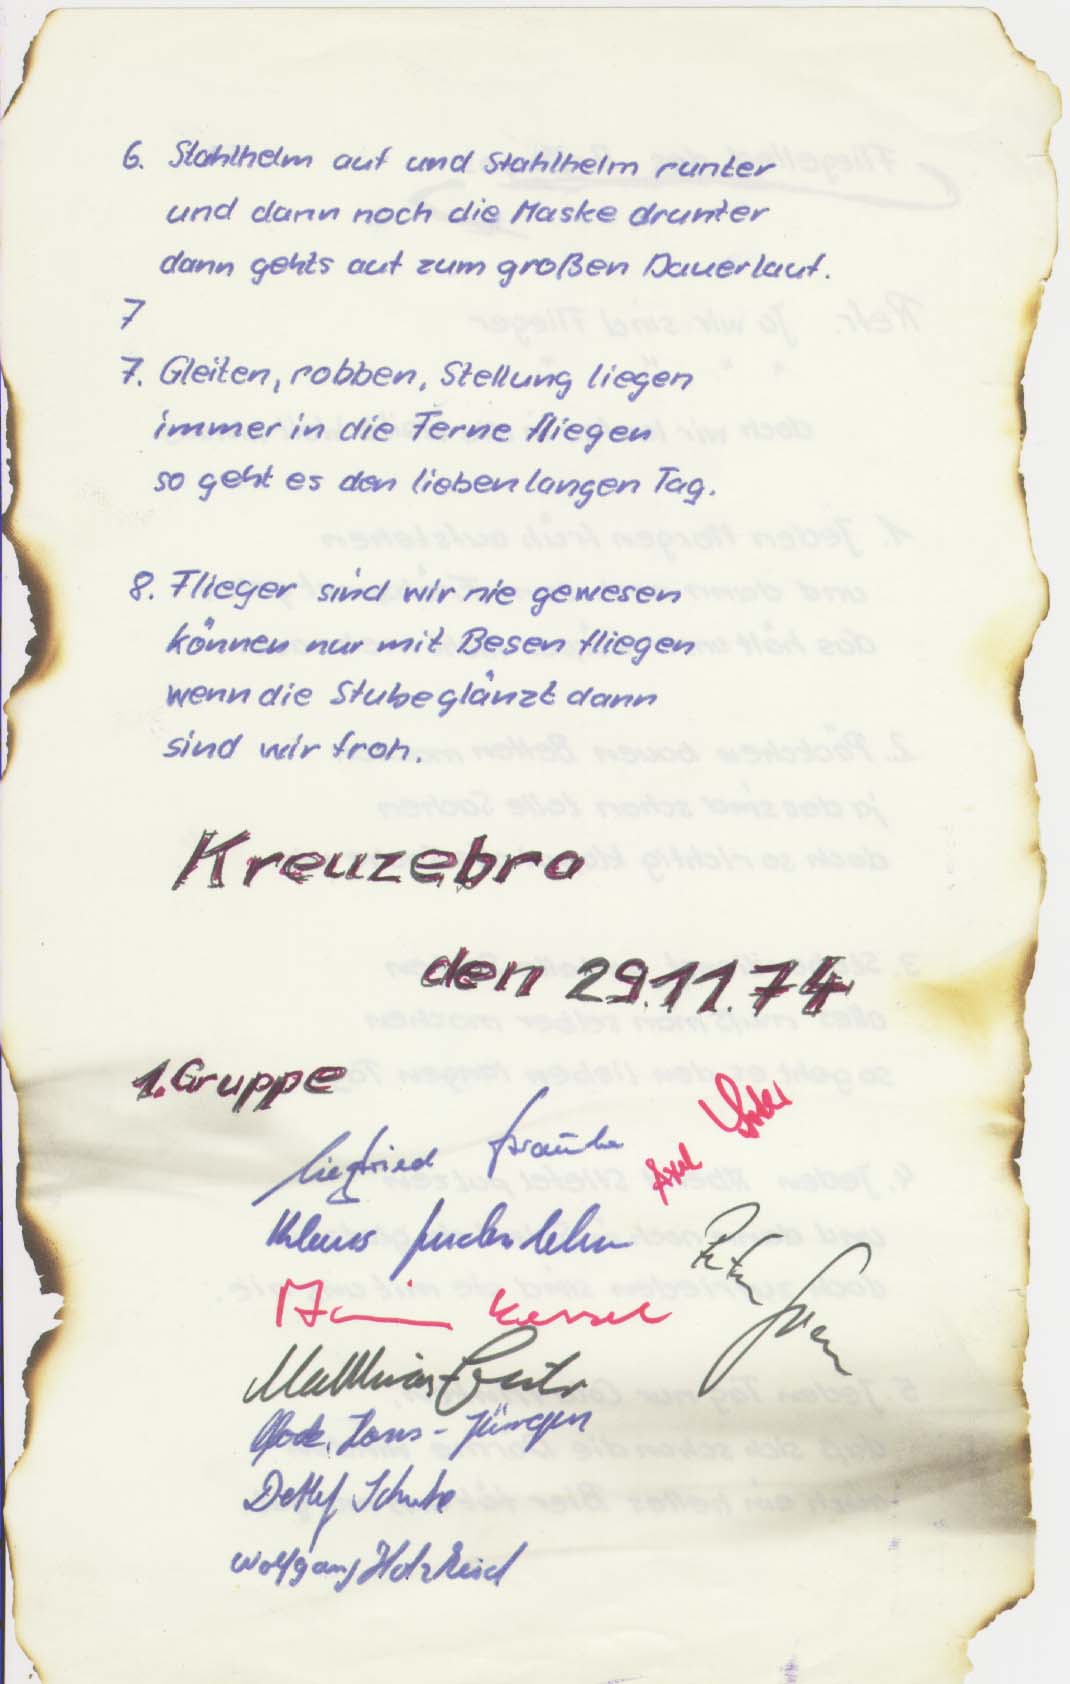 6. Stahlhelm auf und Stahlhelm runter
und dann noch die Maske drunter
dann gehts auf zum großen Dauerlauf.
7
7. Gleiten, robben, Stellung liegen
immer in die Ferne fliegen
so geht es den lieben langen Tag.
8. Flieger sind wir nie gewesen
können nur mit Besen fliegen
wenn die Stube glänzt dann
sind wir froh.
Kreuzebra
den 29.11.74
1. Gruppe
Siegfried
Axel
Klaus
Peter
Matthias
Hans-Jürgen
Detlef
Wolfgang